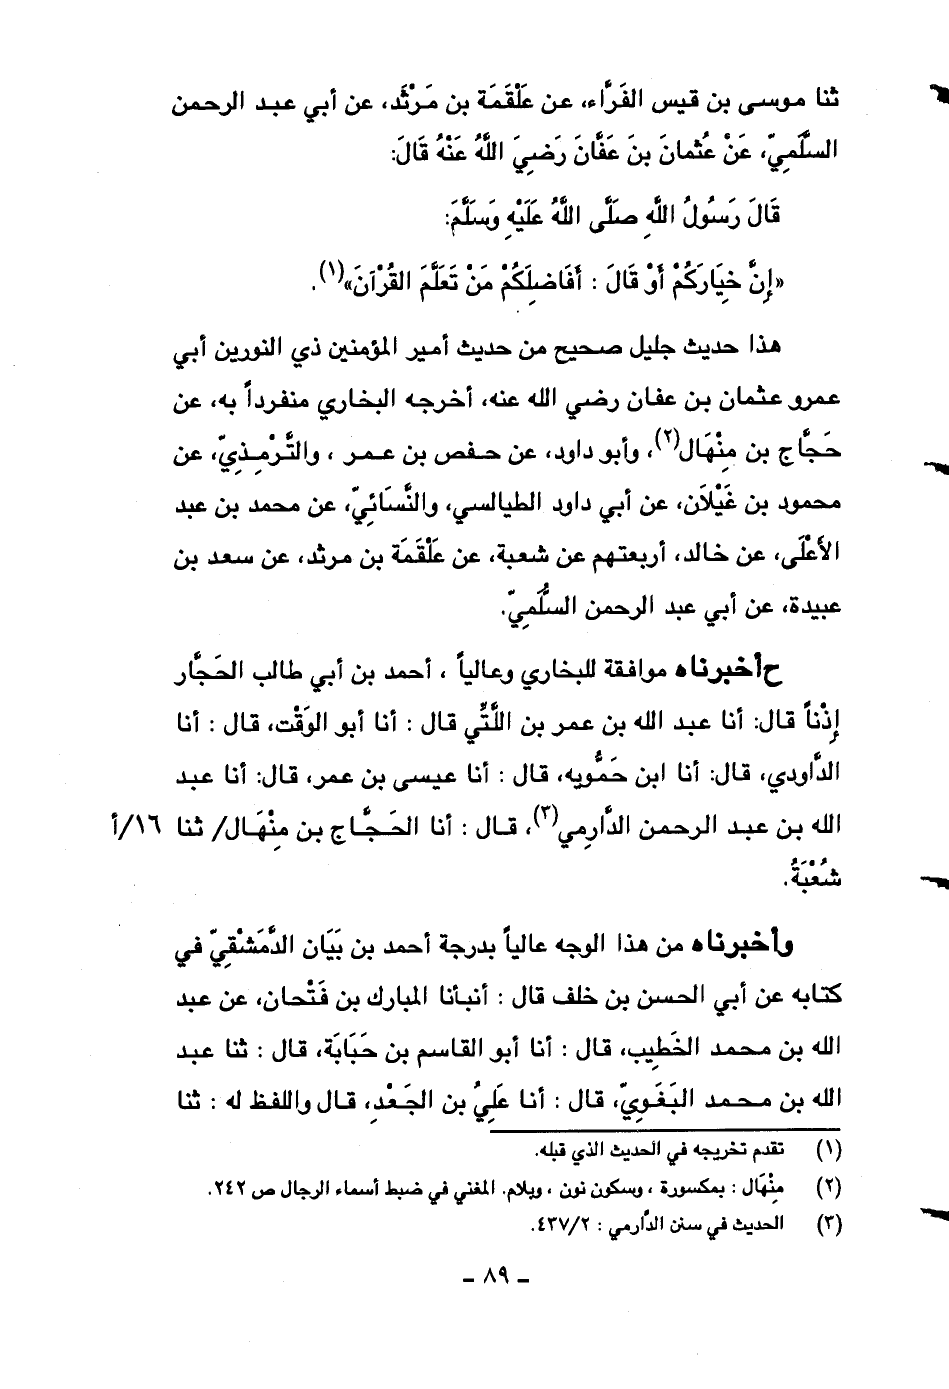 ثنا موسى بن قيس الفَرَّاء، عن عَلْقَمَة بن مَرْثَد، عن أبي عبد الرحمن
السلَّمِيّ، عَنْ عُثمانَ بنَ عَفَّانَ رَضِيَ اللَّهُ عَنْهُ قَالَ:
قَالَ رَسُولُ اللَّهِ صلَّى اللَّهُ عَلَيْهِ وَسَلَّمَ:
«إِنَّ خِيَارَكُمْ أوْ قَالَ : أفَاضلِكُمْ مَنْ تَعَلَّمَ القُرْآنَ»(١).
هذا حديث جليل صحيح من حديث أمير المؤمنين ذي النورين أبي
عمرو عثمان بن عفان رضي الله عنه، أخرجه البخاري منفرداً به، عن
حَجَّاج بن مِنْهَال(٢)، وأبو داود، عن حفص بن عمر ، والتَّرْمِذِيّ، عن
محمود بن غَيْلاَن، عن أبي داود الطيالسي، والنَّسَائِيّ، عن محمد بن عبد
الأَعْلَى، عن خالد، أربعتهم عن شعبة، عن عَلْقَمَة بن مرثد، عن سعد بن
عبيدة، عن أبي عبد الرحمن السلَُّمِيّ.
ح أخبرناه موافقة للبخاري وعالياً ، أحمد بن أبي طالب الحَجَّار
إذْناً قال: أنا عبد الله بن عمر بن اللَّتِّي قال : أنا أبو الوَقْت، قال : أنا
الدَّاودي، قال: أنا ابن حَمُّويه، قال : أنا عيسى بن عمر، قال: أنا عبد
الله بن عبد الرحمن الدَّارِمي(٣)، قال : أنا الحَجَّاج بن مِنْهَال/ ثنا ١٦/أ
شُعْبَةُ.
وأخبرناه من هذا الوجه عالياً بدرجة أحمد بن بَيَان الدَّمَشْقِيّ في
كتابه عن أبي الحسن بن خلف قال : أنبأنا المبارك بن فَتْحان، عن عبد
الله بن محمد الخَطِيب، قال : أنا أبو القاسم بن حَبَابَة، قال : ثنا عبد
الله بن محمد البَغَوِيّ، قال : أنا عَلِيُ بن الجَعْدِ، قال واللفظ له : ثنا
(١) تقدم تخريجه في الحديث الذي قبله.
(٢) مِنْهَال : بمكسورة ، وسكون نون ، وبلام. المغني في ضبط أسماء الرجال ص ٢٤٢.
(٣) الحديث في سنن الدَّارمي : ٤٣٧/٢.
- ٨٩ -